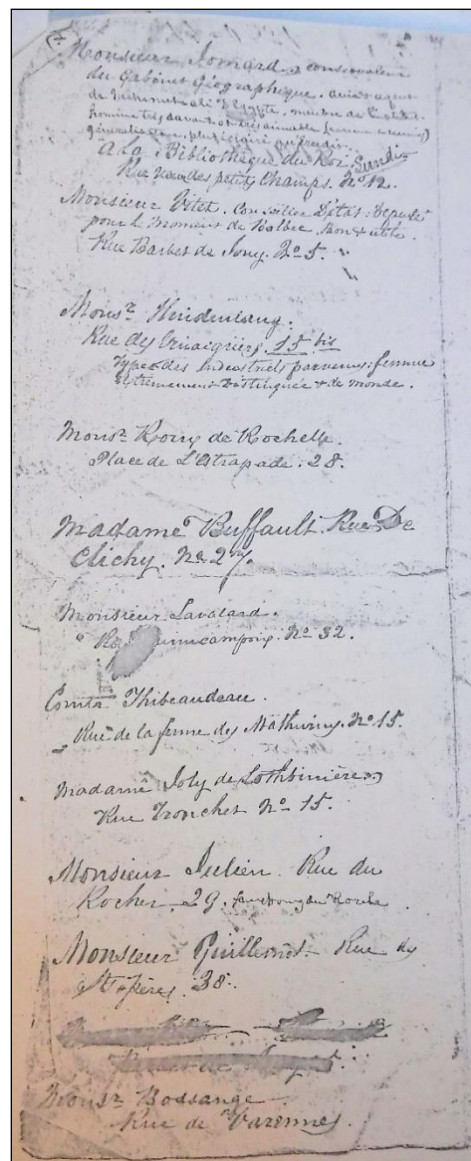 Monsieur Jomard, conservateur
du Gabinet Géographique. ancien agent
de Mehemet ali d'Egypte. membre de
homme très savant et très aimable femme
à La Bibliothèque du Roi. Lundis
Rue neuve des petits Champs. No 12.
Monsieur Vitet. Conseiller D'Etat. Député
pour le moment de Bolbec. bon & utile.
Rue Barbet de Jouy. No 5.
Monsr Hindenlang.
Rue des Vinaigriers. 15 bis
Type des Industriels parvenus. femme
extrêmement distinguée & de monde.
Monsr Roux de Rochelle.
Place de L'Estrapade. 28.
Madame Buffault. Rue De
Clichy. No 27.
Monsieur Lavalard.
uincampoix. No 32.
Comte Thibeaudeau.
Rue de la ferme des Mathurins. No 15.
Madame Joly de Lotbinière
Rue Tronchet No 15.
Monsieur Julien. Rue du
Rocher. 29. faubourg du Roule
Monsieur Guillemot. Rue des
Sts pères. 38.
Monsr Bossange
Rue de Varennes.